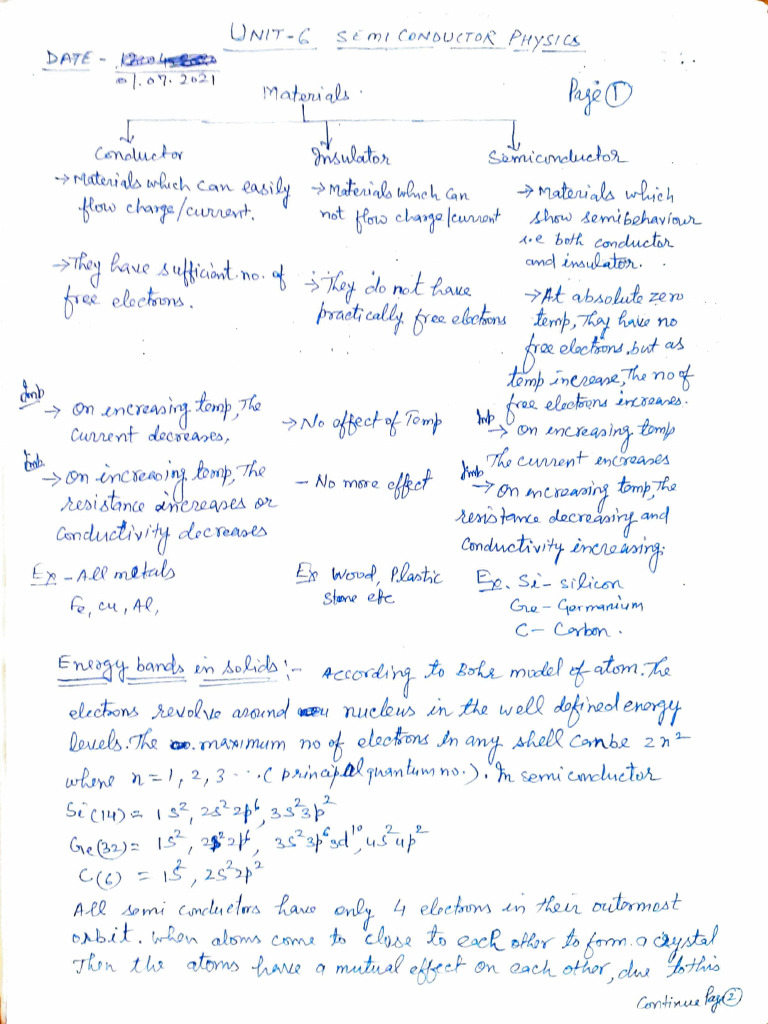 UNIT-6 SEMI CONDUCTOR PHYSICS
DATE -
01.07.2021
Materials.
Page ①
Conductor
→ Materials which can easily
flow charge/current.
→ They have sufficient no. of
free electrons.
Imb
→ On encreasing temp, The
current decreases,
Imb.
→ on increasing temp, The
resistance increases or
Conductivity decreases
Ex - All metals
Fe, cu, Al,
Insulator
→ Materials which Can
not flow charge/current
→ They do not have
practically free electrons
→ No effect of Temp
- No more effect
Ex Wood, Plastic
Stone etc
Semiconductor
→ Materials which
show semibehaviour
i.e both conductor
and insulator.
→ At absolute zero
temp, They have no
free electrons, but as
temp increase, The no of
free electrons increases.
Imp
→ on encreasing temp
The current encreases
Imb
→ on increasing temp, the
resistance decreasing and
Conductivity increasing;
Ex. Si - silicon
Ge - Germanium
C - Carbon.
Energy bands in solids :- According to Bohr model of atom. The
electrons revolve around nucleus in the well defined energy
levels. The maximum no of electrons in any shell can be 2n²
where n = 1, 2, 3 ... ( principal quantum no.). In semi conductor
Si (14) = 1s², 2s² 2p⁶, 3s² 3p²
Ge (32) = 1s², 2s² 2p⁶, 3s² 3p⁶ 3d¹⁰, 4s² 4p²
C (6) = 1s², 2s² 2p²
All semi conductors have only 4 electrons in their outermost
orbit. When atoms come to close to each other to form a crystal
Then the atoms have a mutual effect on each other, due to this
Continue Page ②